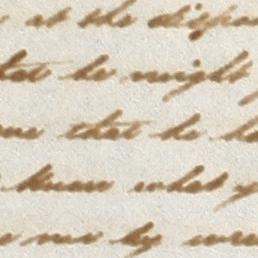 at the dispo
that he might
that he ha
know what y
me by